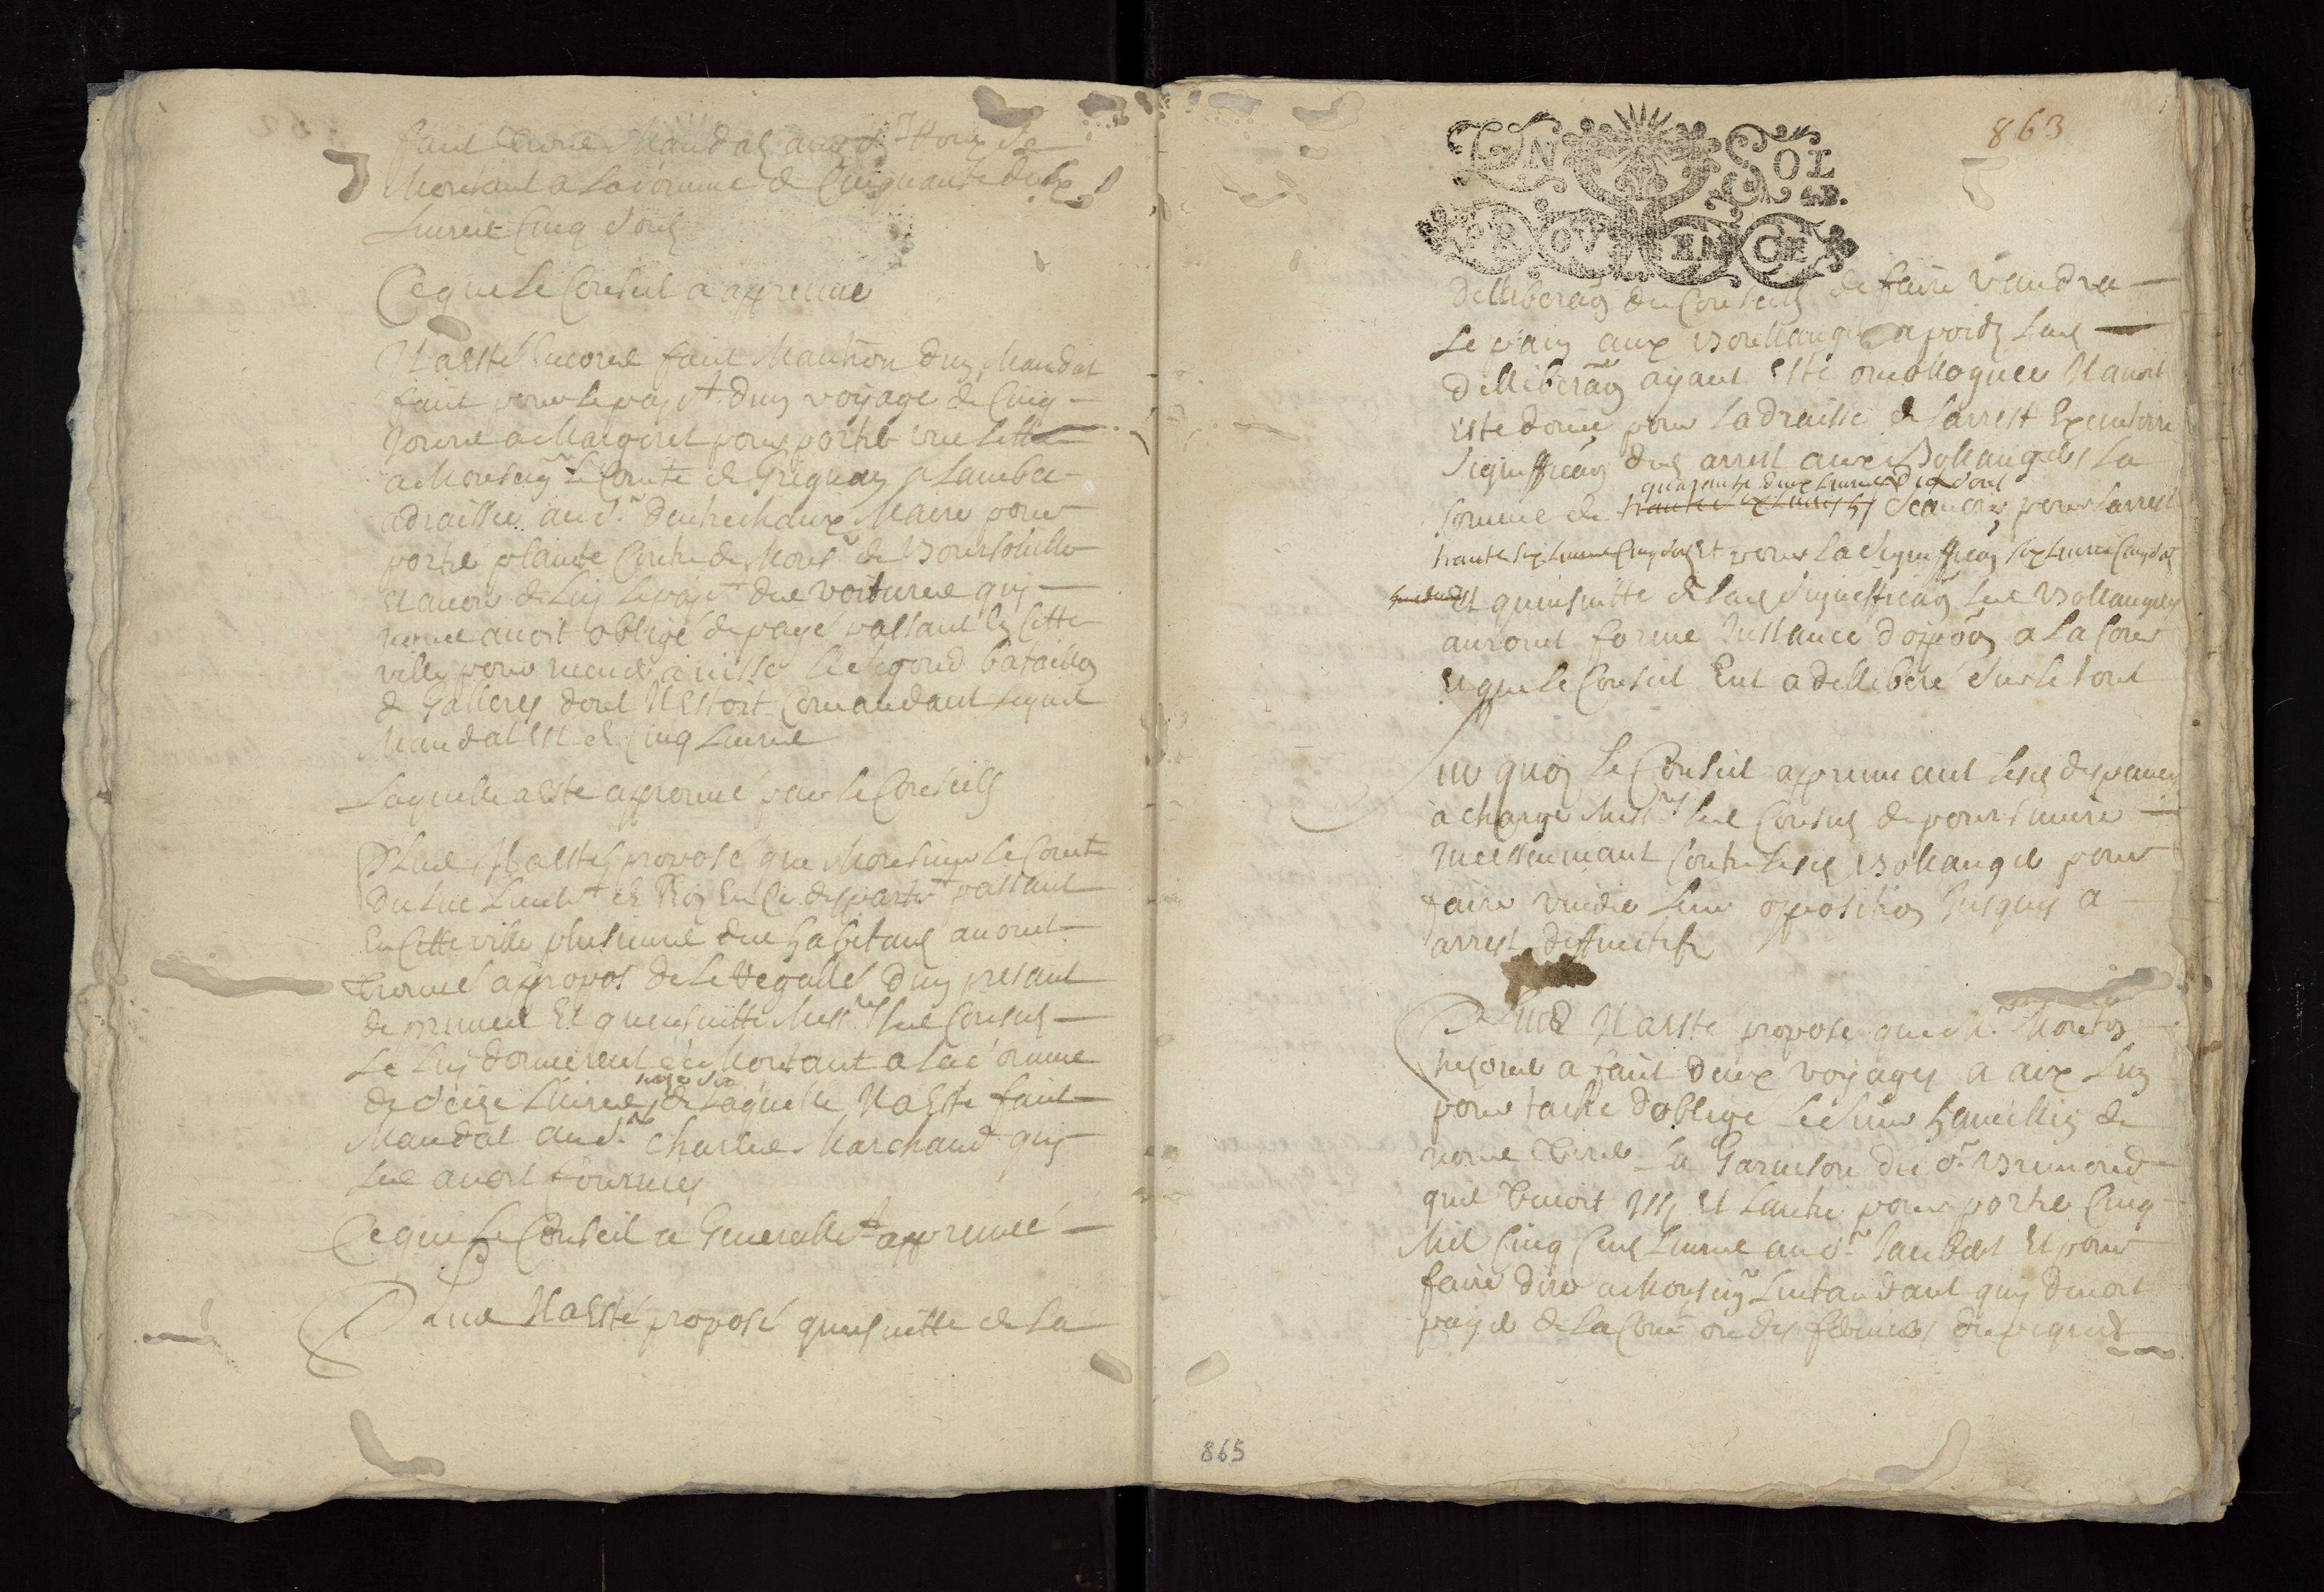 faict Mandat au Sr Honoré
Montant a la somme de Cinquante deux
Livres Cinq Sous
Ce que le Conseil a appreuvé
Il a esté encores faict Mantion dun Mandat
faict pour le payet dun voÿage de Cinq
Jours a Margerel pour porter une lettre
a Monseigr le Comte de Grignan a Lambex
adraissée au Sr dentrechaux Maire pour
porter plainte contre de Monsr de
et avoir de luy le payet des voitures quy
nous avoit obligé de payé passant En Cette
ville pour a nisse le Segond bataillon
de Galleres dont Il Estoit Comandant lequel
Mandat est de Cinq Livres
Laquelle a esté approuvé par le Conseils
Plus Il a esté proposé que Monsieur le Comte
du Luc Lieutt de Roy En Ce despartet passant
En Cette ville plusieurs des habitans auront
trouvés a propos de le Regallés dun presant
de prunes Et quensuitte Messrs les Consuls
Le luy donnerent Montant a la somme
de seize Livres de laquelle Il a esté faict
Mandat au Sr Charles Marchand quy
les avoit fournies
Ce que le Conseil a Generallet appreuvé
Plus Il a esté proposé quensuitte de la
863
UN SOL
4 D.
PROVINCE
delliberaon du Conseils de faire vandre
le pain aux Boullangers a poidz lad
delliberaon aÿant esté omollogueé Il avoit
esté donné pour ladraisse de larrest Executoire
Signifficaon dud arrest aux Bollangers la
quarante deux Livres dix sous
somme de trante six Livres 5 s Scavoir pour larrest
trante six Livres Cinq sols Et pour la Signifficaon six Livres Cinq sols
Et quensuitte de lad Signifficaon les Bollangers
auront formé Instance dopoon a la Cour
Et que le Conseil Ent a delliberé sur le tout
Sur quoy le Conseil appreuvant lesd despances
a charge Messrs les Consuls de poursuivre
Incessemmant contre lesd Bollangers pour
faire vuider leur opposition Jusques a
arrest deffinitif
Plus Il a esté proposé que Mr Monton
a faict deux voÿages a aix Lun
pour tacher dobliger le Sieur de
nous tirer la Garnison du Sr Brunond
quil tenoit Icy Et lautre pour porter Cinq
Mil Cinq Cens Livres au Sr Jaubert Et pour
faire dire a Monseigr Lintandant quy devoit
payer de la Comté ou des fermiers du piquet
865